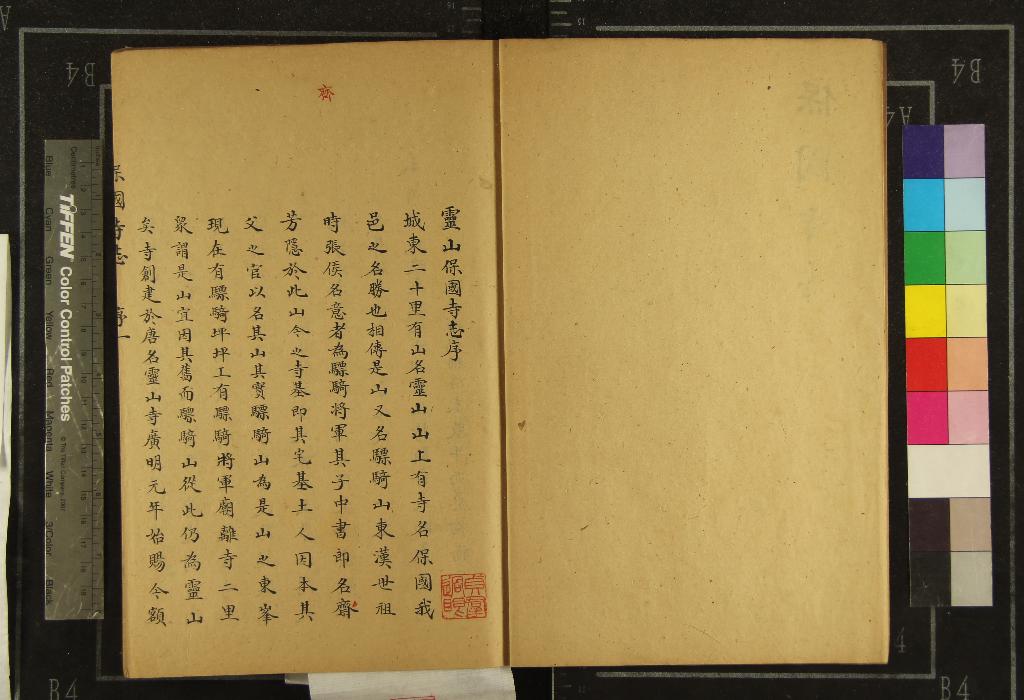 靈山保國寺志序
城東二十里有山名靈山山上有寺名保國我
邑之名勝也相傳是山又名驃騎山東漢世祖
時張侯名意者為驃騎將軍其子中書郎名齊
芳隱於此山今之寺基即其宅基土人因本其
父之官以名其山其實驃騎山為是山之東峯
現在有驃騎坪坪工有驃騎將軍廟離寺二里
衆謂是山宜因其舊而驃騎山從此仍為靈山
矣寺創建於唐名靈山寺廣明元年始賜今額
保國寺志 序一
齊
TIFFEN Color Control Patches
© The Tiffen Company, 2007
Centimetres
Inches
Blue
Cyan
Green
Yellow
Red
Magenta
White
3/Color
Black
B4
B4
A4
B4